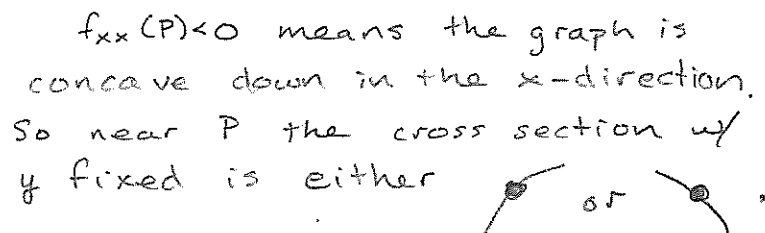 fxx (P)<0 means the graph is
concave down in the x-direction.
So near P the cross section w/
y fixed is either or .